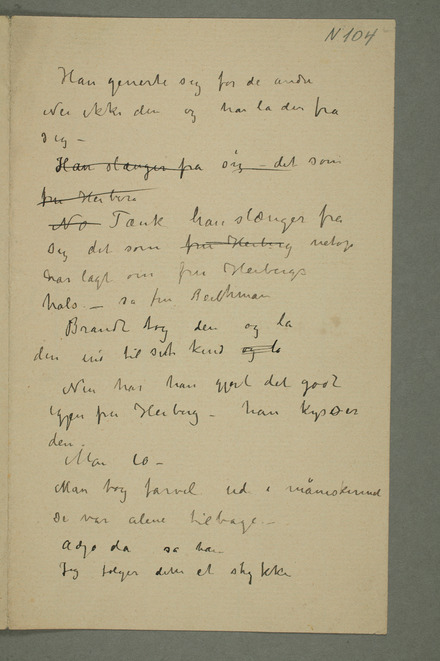 N 104
Han generte sig for de andre
Nei ikke den og han la den fra
sig –
Han slænger fra sig – det som
fru Heiberg
No Tænk han slænger fra
sig det som fru Heiberg netop
har lagt om fru Heibergs
hals – sa fru
Brandt tog den og la
den ind til sit kind og lo
Nu har han gjort det godt
igjen fru Heiberg – han kysser
den –
Man lo –
Man tog farvel ud i måneskinnet
De var alene tilbage –
Adjø da sa han
Jeg følger dem et stykke